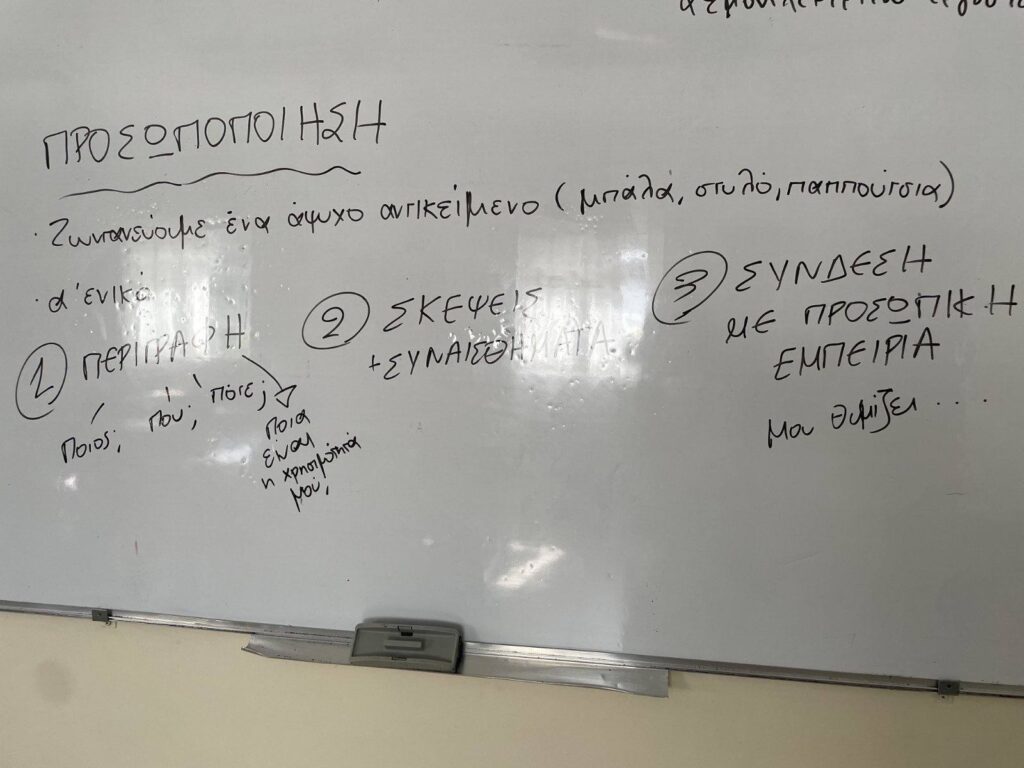 ΠΡΟΣΩΠΟΠΟΙΗΣΗ
· Ζωντανεύουμε ένα άψυχο αντικείμενο (μπάλα, στυλό, παππούτσια)
· α' ενικό
1 ΠΕΡΙΓΡΑΦΗ
Ποιος; Που; Πότε;
Ποια
είναι
η χρησιμότητά
μου;
2 ΣΚΕΨΕΙΣ
+ ΣΥΝΑΙΣΘΗΜΑΤΑ
3 ΣΥΝΔΕΣΗ
ΜΕ ΠΡΟΣΩΠΙΚΗ
ΕΜΠΕΙΡΙΑ
Μου θυμίζει ....